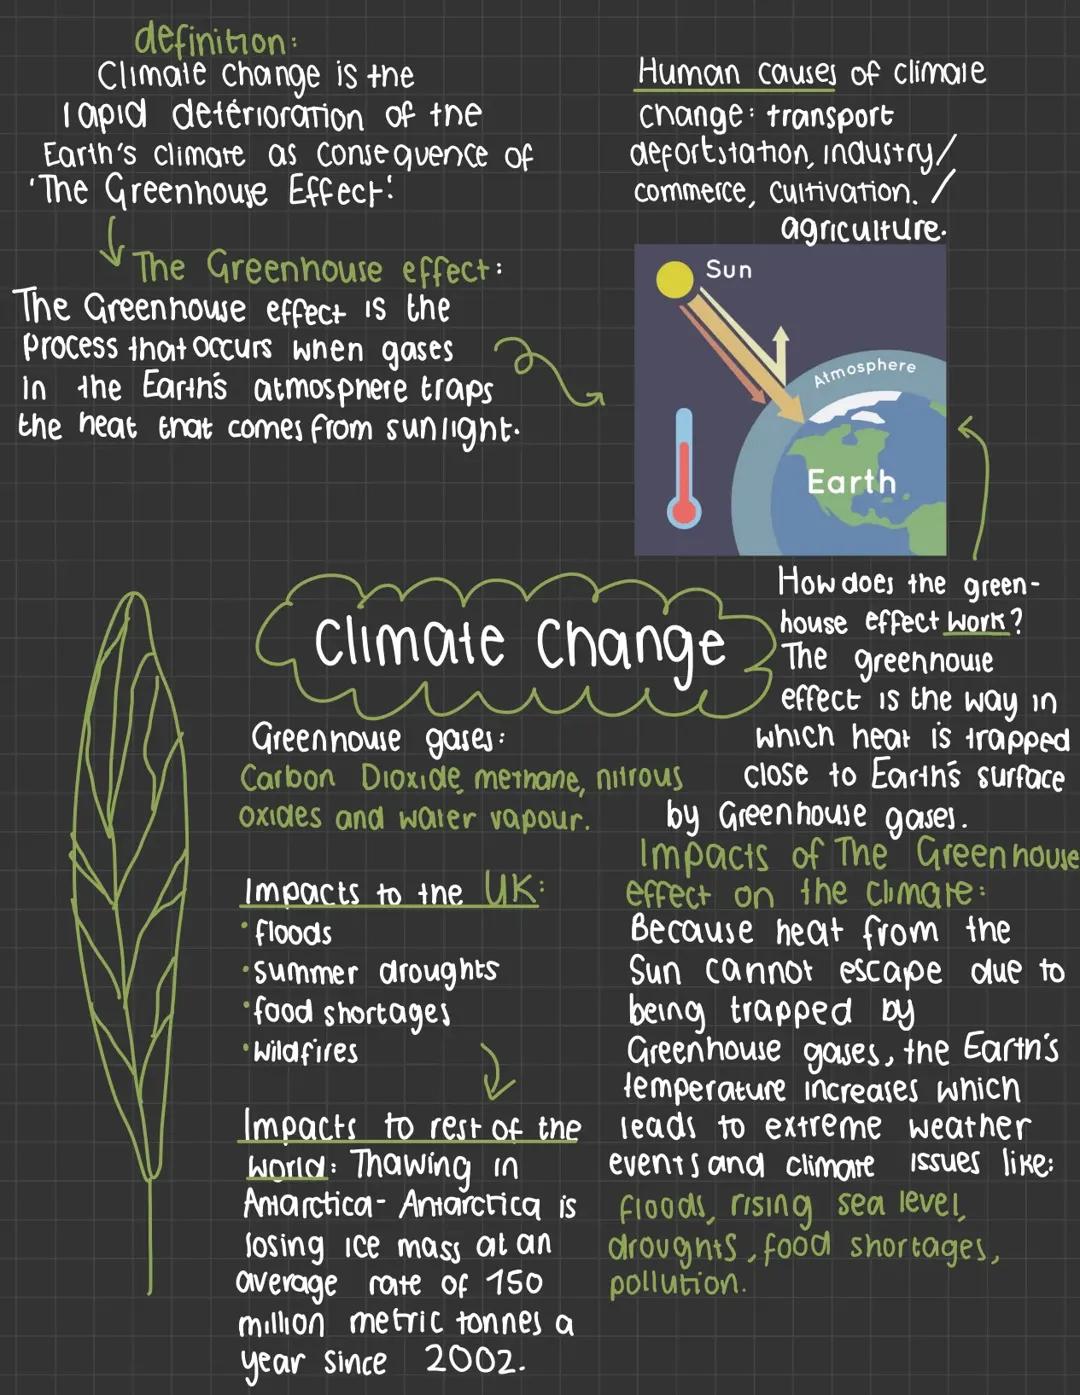 definition:
Climate change is the
rapid deterioration of the
Earth's climate as consequence of
'The Greenhouse Effect'.
The Greenhouse effect:
The Greenhouse effect is the
process that occurs when gases
in the Earth's atmosphere traps
the heat that comes from sunlight.
Human causes of climate
change: transport
defortstation, industry/
commerce, cultivation. /
agriculture.
Sun
Atmosphere
Earth
How does the green-
house effect work?
The greenhouse
effect is the way in
which heat is trapped
close to Earth's surface
by Greenhouse gases.
Climate Change
Greenhouse gases:
Carbon Dioxide, methane, nitrous
oxides and water vapour.
Impacts to the UK:
• floods
• summer droughts
• food shortages
• wildfires
Impacts to rest of the
world: Thawing in
Antarctica - Antarctica is
losing ice mass at an
average rate of 150
million metric tonnes a
year since 2002.
Impacts of The Greenhouse
effect on the climate:
Because heat from the
Sun cannot escape due to
being trapped by
Greenhouse gases, the Earth's
temperature increases which
leads to extreme weather
events and climate issues like:
floods, rising sea level,
droughts, food shortages,
pollution.